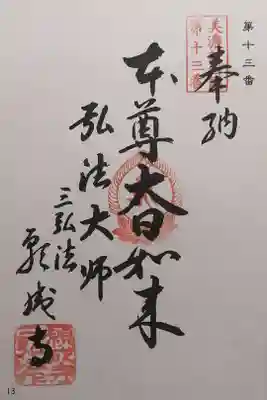 第十三番
第十三番
奉納
本尊大日如来
弘法大师
三弘法
願成寺
13